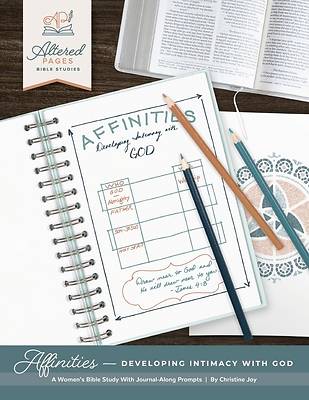 Altered
PAGES
BIBLE STUDIES
AFFINITIES
Developing Intimacy with
GOD
WHO
GOD
Almighty
FATHER
Draw near to God and
He will draw near to you
- James 4:8
Affinities — DEVELOPING INTIMACY WITH GOD
A Women's Bible Study With Journal-Along Prompts | By Christine Joy